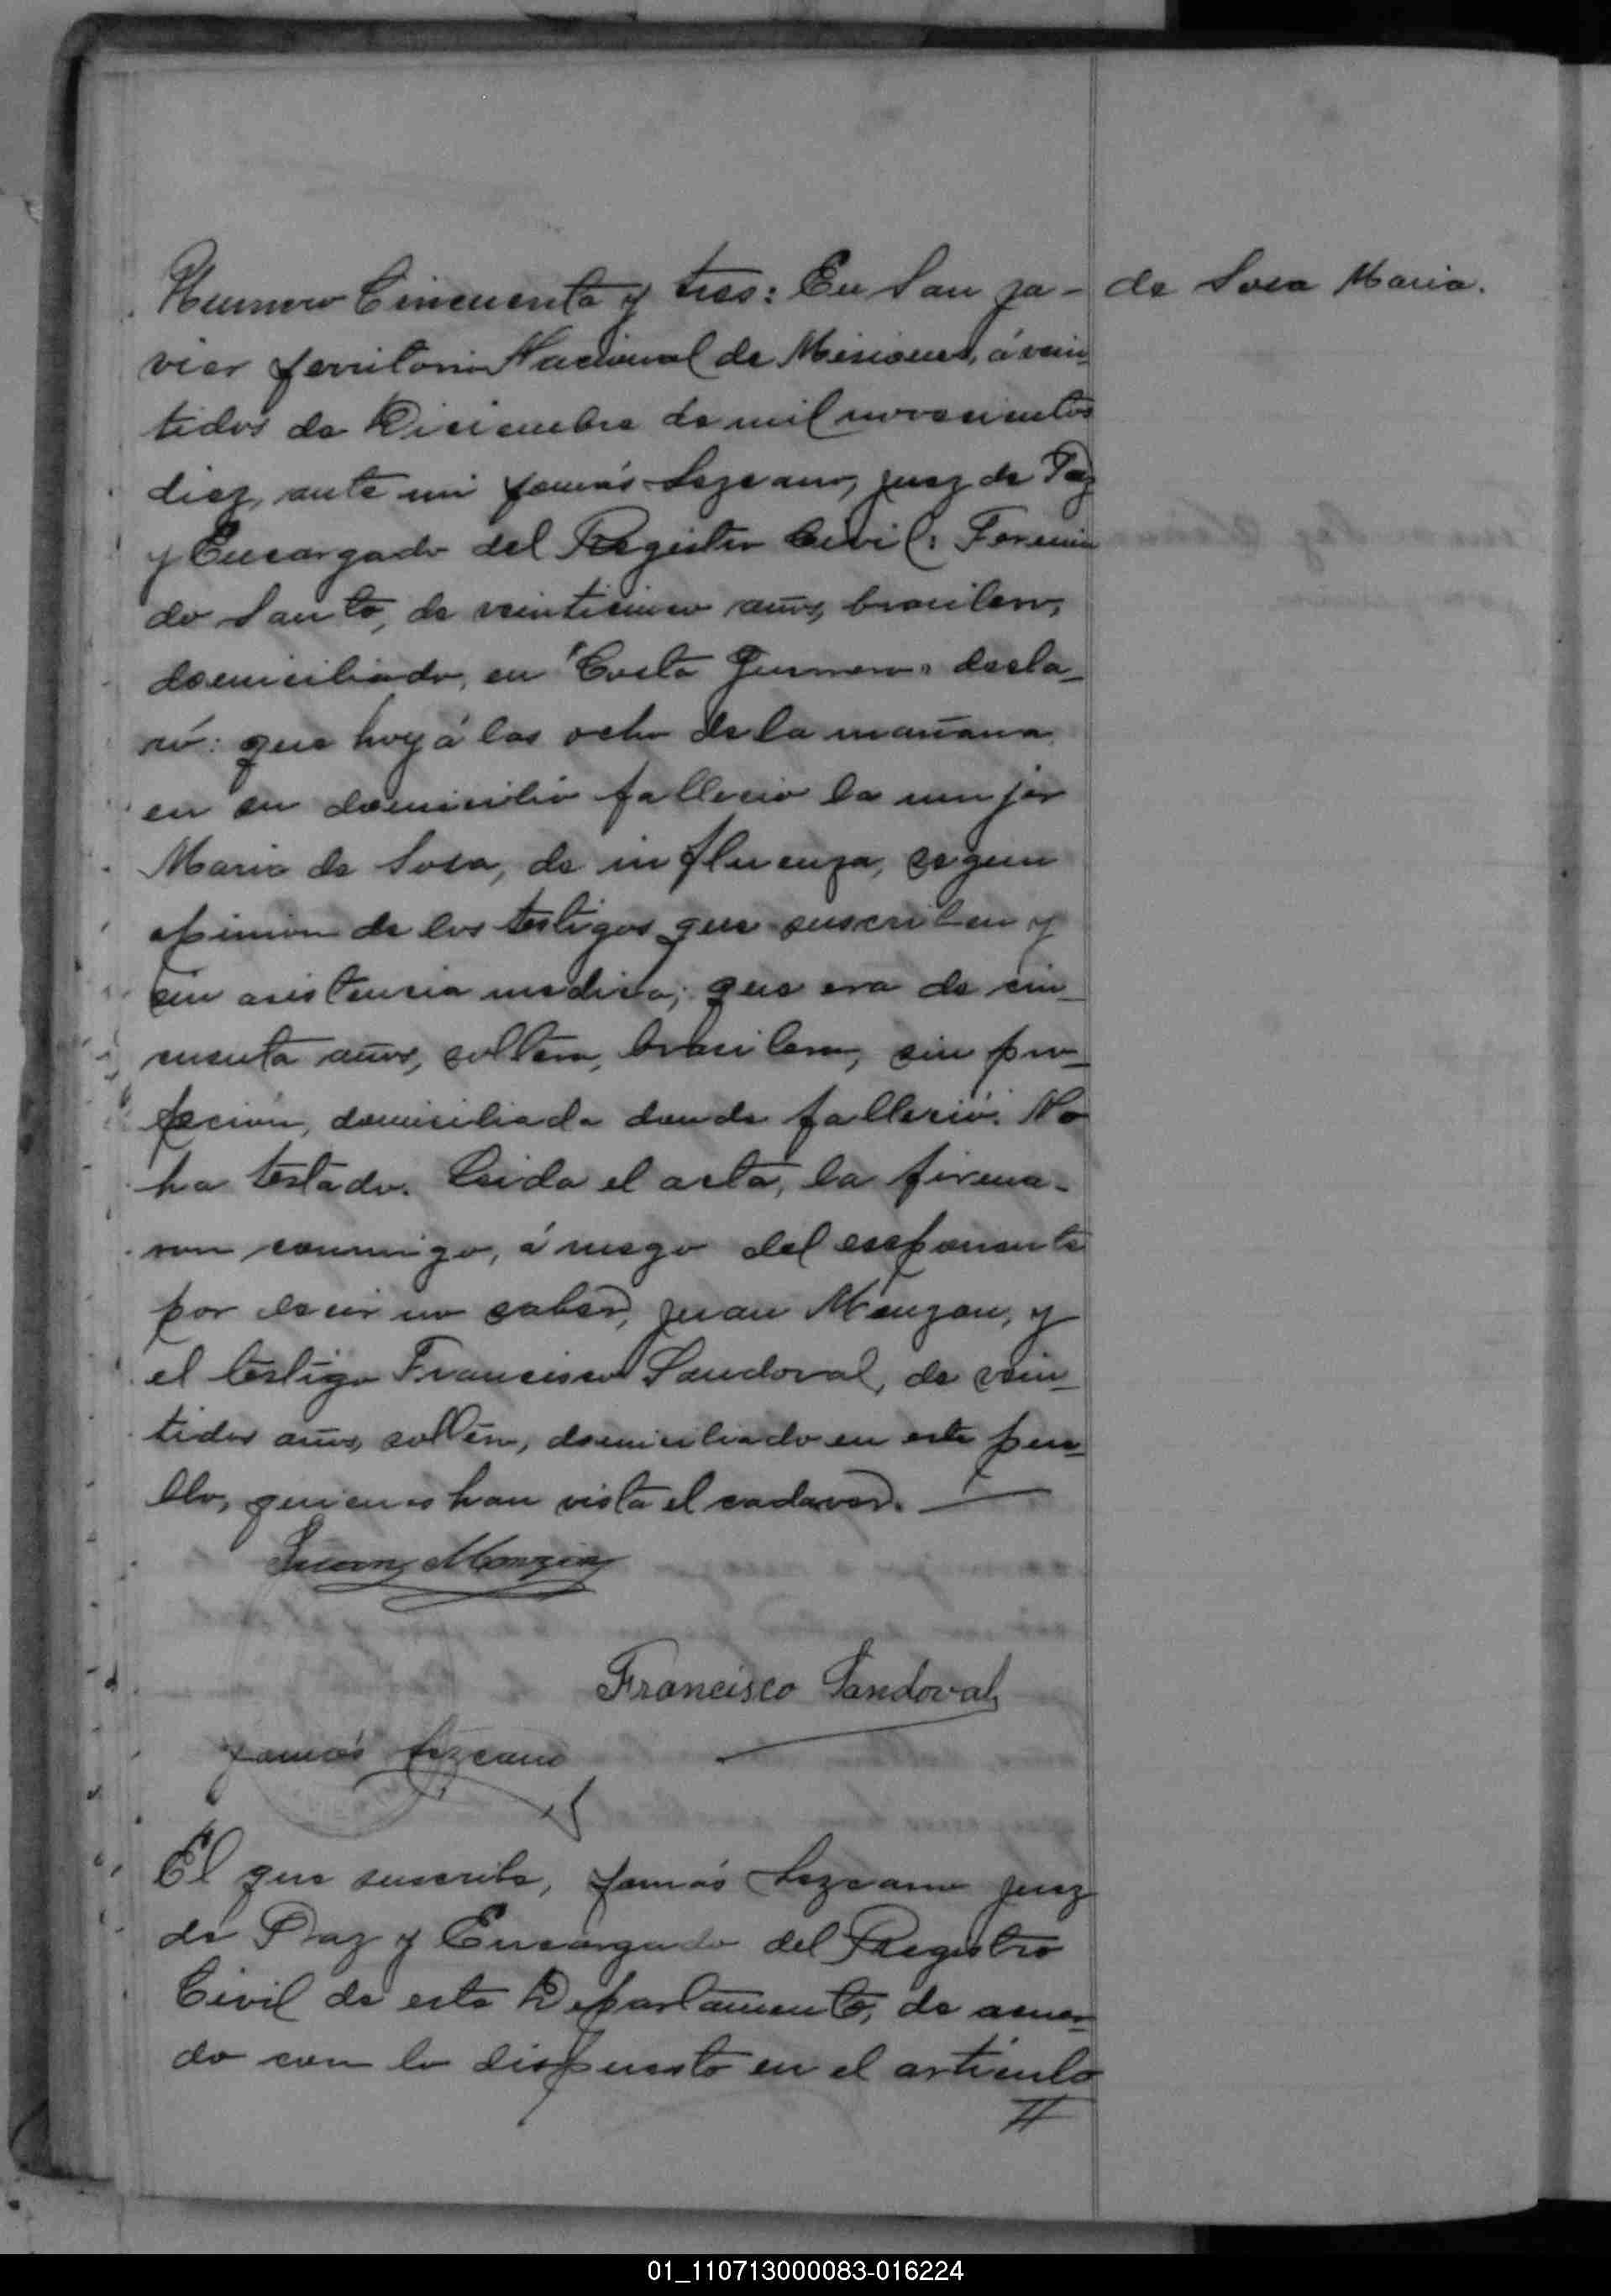 Numero Cincuenta y tres: En San Ja-
de Sosa Maria.
vier Territorio Nacional de Misiones, á vein-
tidos de Diciembre de mil novecientos
diez, ante mi Tomás Lezcano, Juez de Paz
y Encargado del Registro Civil:
do Santo, de veinticinco años, brasilero,
domiciliado, en "Costa" decla-
ró: que hoy á las ocho de la mañana
en su domicilio fallecio la mujer
Maria de Sosa, de influenza, segun
opinion de los testigos que suscriben y
sin asistencia medica; que era de cin-
cuenta años, soltera, brasilera, sin pro-
fecion, domiciliada donde falleció. No
ha testado. Leida el acta, la firma-
ron conmigo, á ruego del esponente
por decir no saber, Juan Monzon, y
el testigo Francisco Sandoval, de vein-
tidos años, soltero, domiciliado en este pue-
blo, quienes han visto el cadaver.
Juan Monzon
Francisco Sandoval
Tomás Lezcano
El que suscribe, Tomás Lezcano Juez
de Paz y Encargado del Registro
Civil de este Departamento, de acuer-
do con lo dispuesto en el artículo
//
01_110713000083-016224